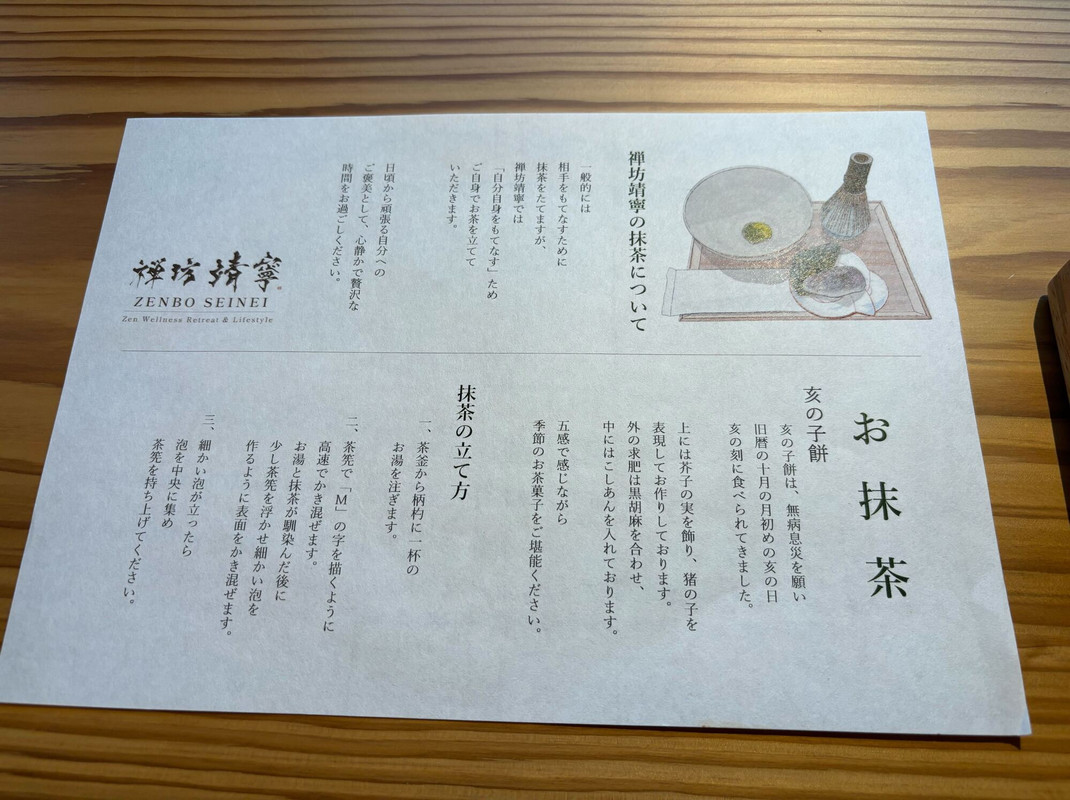 禅坊靖寧の抹茶について
一般的には
相手をもてなすために
抹茶をたてますが、
禅坊靖寧では
「自分自身をもてなす」ため
ご自身でお茶を立てて
いただきます。
日頃から頑張る自分への
ご褒美として、心静かで贅沢な
時間をお過ごしください。
禅坊 靖寧
ZENBO SEINEI
Zen Wellness Retreat & Lifestyle
お抹茶
亥の子餅
亥の子餅は、無病息災を願い
旧暦の十月の月初めの亥の日
亥の刻に食べられてきました。
上には芥子の実を飾り、猪の子を
表現してお作りしております。
外の求肥は黒胡麻を合わせ、
中にはこしあんを入れております。
五感で感じながら
季節のお茶菓子をご堪能ください。
抹茶の立て方
一、茶釜から柄杓に一杯の
お湯を注ぎます。
二、茶筅で「M」の字を描くように
高速でかき混ぜます。
お湯と抹茶が馴染んだ後に
少し茶筅を浮かせ細かい泡を
作るように表面をかき混ぜます。
三、細かい泡が立ったら
泡を中央に集め
茶筅を持ち上げてください。